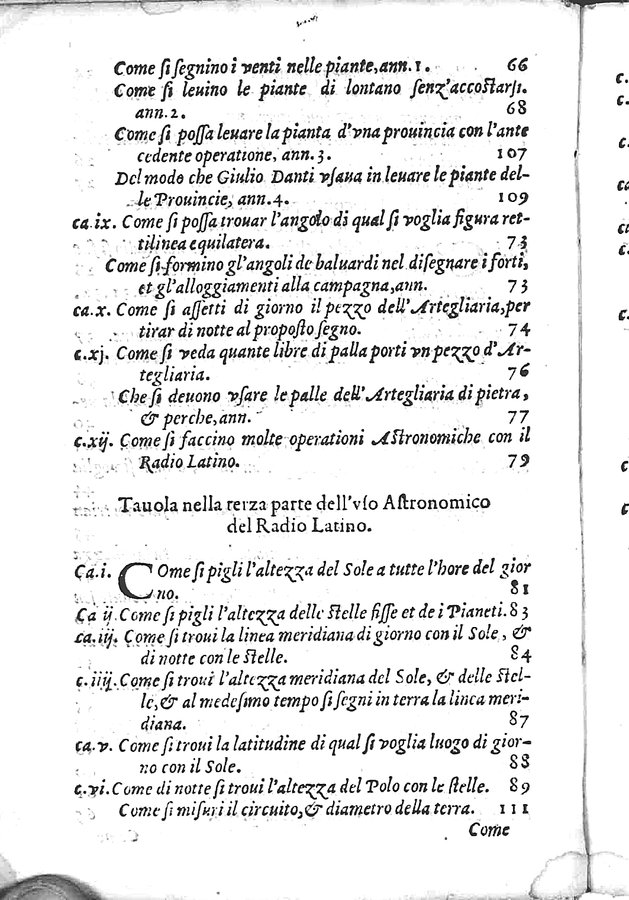 Come ſi ſegnino i venti nelle piante,ann.1. 66
Come ſi leuino le piante di lontano ſenz'accoſtarſi.
ann.2. 68
Come ſi poſſa leuare la pianta d'vna prouincia con l'ante
cedente operatione, ann.3. 107
Del modo che Giulio Danti vſaua in leuare le piante del-
le Prouincie, ann.4. 109
ca.ix. Come ſi poſſa trouar l'angolo di qual ſi voglia figura ret-
tilinea equilatera. 73
Come ſi formino gl'angoli de baluardi nel diſegnare i forti,
et gl'alloggiamenti alla campagna,ann. 73
ca.x. Come ſi aſſetti di giorno il pezzo dell'Artegliaria,per
tirar di notte al propoſto ſegno. 74
c.xj. Come ſi veda quante libre di palla porti vn pezzo d'Ar-
tegliaria. 76
Che ſi deuono vſare le palle dell'Artegliaria di pietra,
& perche,ann. 77
c.xij. Come ſi faccino molte operationi Aſtronomiche con il
Radio Latino. 79
Tauola nella terza parte dell'vſo Aſtronomico
del Radio Latino.
Ca.i. COme ſi pigli l'altezza del Sole a tutte l'hore del gior
no. 81
Ca ij.Come ſi pigli l'altezza delle ſtelle fiſſe et de i Pianeti.83
ca.iij. Come ſi troui la linea meridiana di giorno con il Sole, &
di notte con le Stelle. 84
c.iiij.Come ſi troui l'altezza meridiana del Sole, & delle ſtel-
le,& al medeſimo tempo ſi ſegni in terra la linea meri-
diana. 87
ca.v. Come ſi troui la latitudine di qual ſi voglia luogo di gior-
no con il Sole. 88
c.vi.Come di notte ſi troui l'altezza del Polo con le ſtelle. 89
Come ſi miſuri il circuito,& diametro della terra. 111
Come